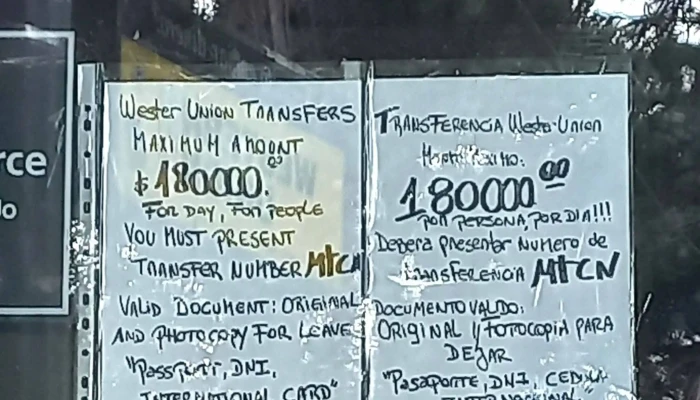 rce
lo
Wester Union TRANSFERS
MAXIMUM AMOUNT
$180000.00
FOR DAY, FOR PEOPLE
YOU MUST PRESENT
TRANSFER NUMBER MTCN
VALID DOCUMENT: ORIGINAL
AND PHOTOCOPY FOR LEAVE
"PASSPORT, DNI,
INTERNATIONAL CARD"
TRANSFERENCIA Wester Union
180000.00
POR PERSONA, POR DIA!!!
Debera presentar Numero de
TRANSFERENCIA MTCN
DOCUMENTO VALIDO:
ORIGINAL y FOTOCOPIA PARA
DEJAR
"PASAPORTE, DNI, CEDULA
INTERNACIONAL"